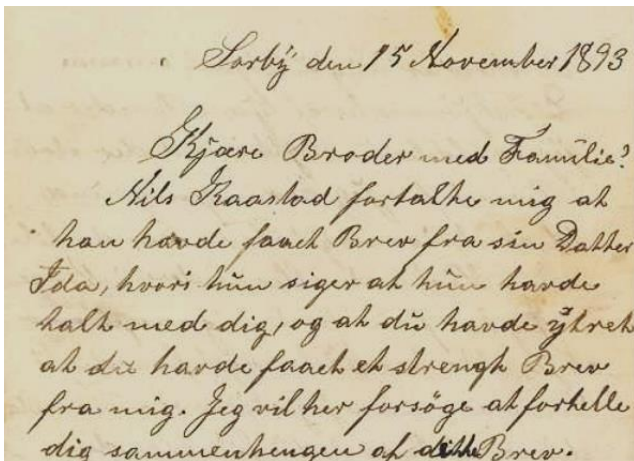 Sørby den 15 November 1893
Kjære Broder med Familie!
Nils Kaastad fortalte mig at
han havde faaet Brev fra sin Datter
Ida, hvori hun siger at hun havde
talt med dig, og at du havde ÿtret
at du havde faaet et strengt Brev
fra mig. Jeg vil her forsöge at fortelle
dig sammenhengen af dette Brev.